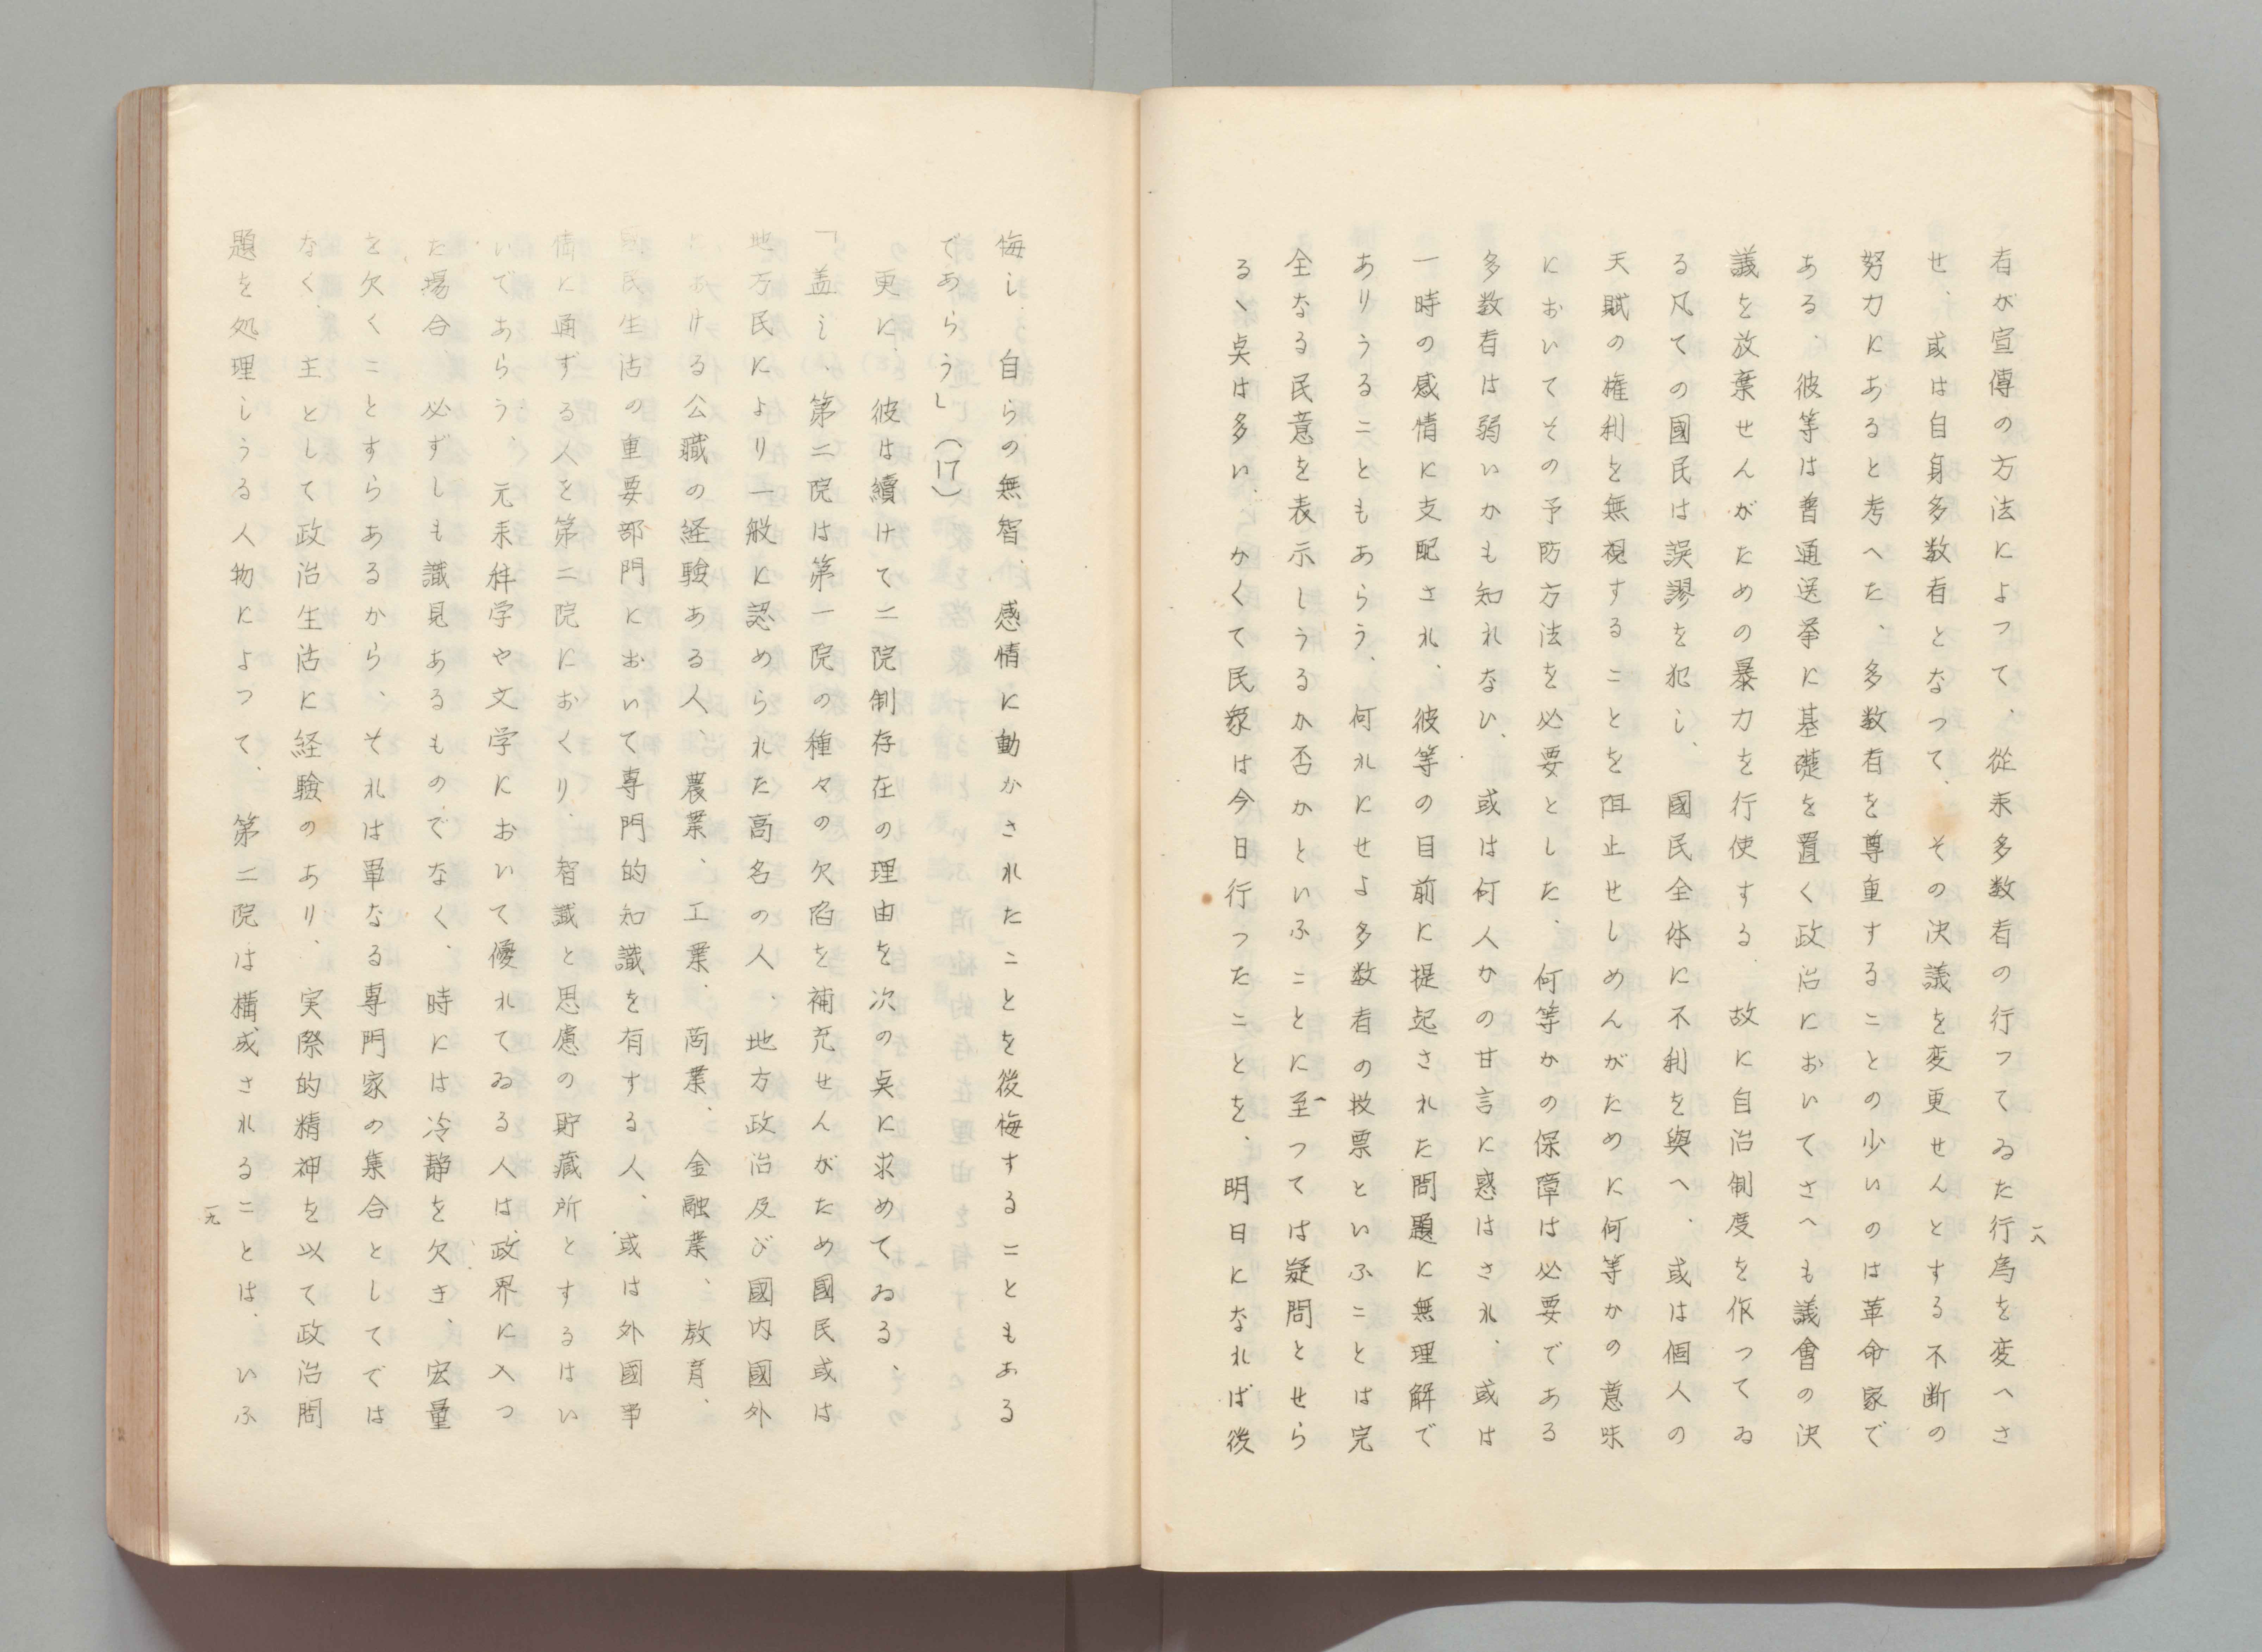 一八
者が宣傳の方法によって、從来多数者の行ってゐた行為を変へさ
せ、或は自身多数者となって、その決議を変更せんとする不断の
努力にあると考へた、多数者を尊重することの少いのは革命家で
ある、彼等は普通選挙に基礎を置く政治においてさへも議會の決
議を放棄せんがための暴力を行使する、故に自治制度を作ってゐ
る凡ての國民は誤謬を犯し、國民全体に不利を與へ、或は個人の
天賦の権利を無視することを阻止せしめんがために何等かの意味
においてその予防方法を必要とした、何等かの保障は必要である
多数者は弱いかも知れない、或は何人かの甘言に惑はされ、或は
一時の感情に支配され、彼等の目前に提起された問題に無理解で
ありうることもあらう、何れにせよ多数者の投票といふことは完
全なる民意を表示しうるか否かといふことに至つては疑問とせら
るヽ奌は多い、かくて民衆は今日行ったことを、明日になれば後
悔し、自らの無智、感情に動かされたことを後悔することもある
であらう」(17)
更に、彼は續けて二院制存在の理由を次の奌に求めてゐる、
「盖し、第二院は第一院の種々の欠陥を補充せんがため國民或は
地方民により一般に認められた高名の人、地方政治及び國内國外
における公職の経験ある人、農業、工業、商業、金融業、教育、
國民生活の重要部門において専門的知識を有する人、或は外國事
情に通ずる人を第二院におくり、智識と思慮の貯藏所とするはい
いであらう、元来科学や文学において優れてゐる人は、政界に入つ
た場合、必ずしも識見あるものでなく、時には冷静を欠き、宏量
を欠くことすらあるから、それは単なる専門家の集合としてでは
なく、主として政治生活に経験のあり、実際的精神を以て政治問
題を処理しうる人物によって、第二院は構成されることは、いふ
一九